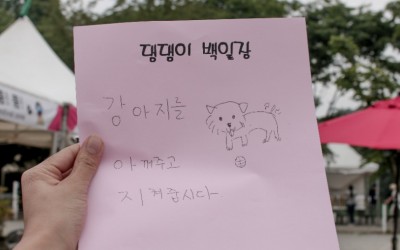 댕댕이 백일장
강아지를
아껴주고
지켜줍시다